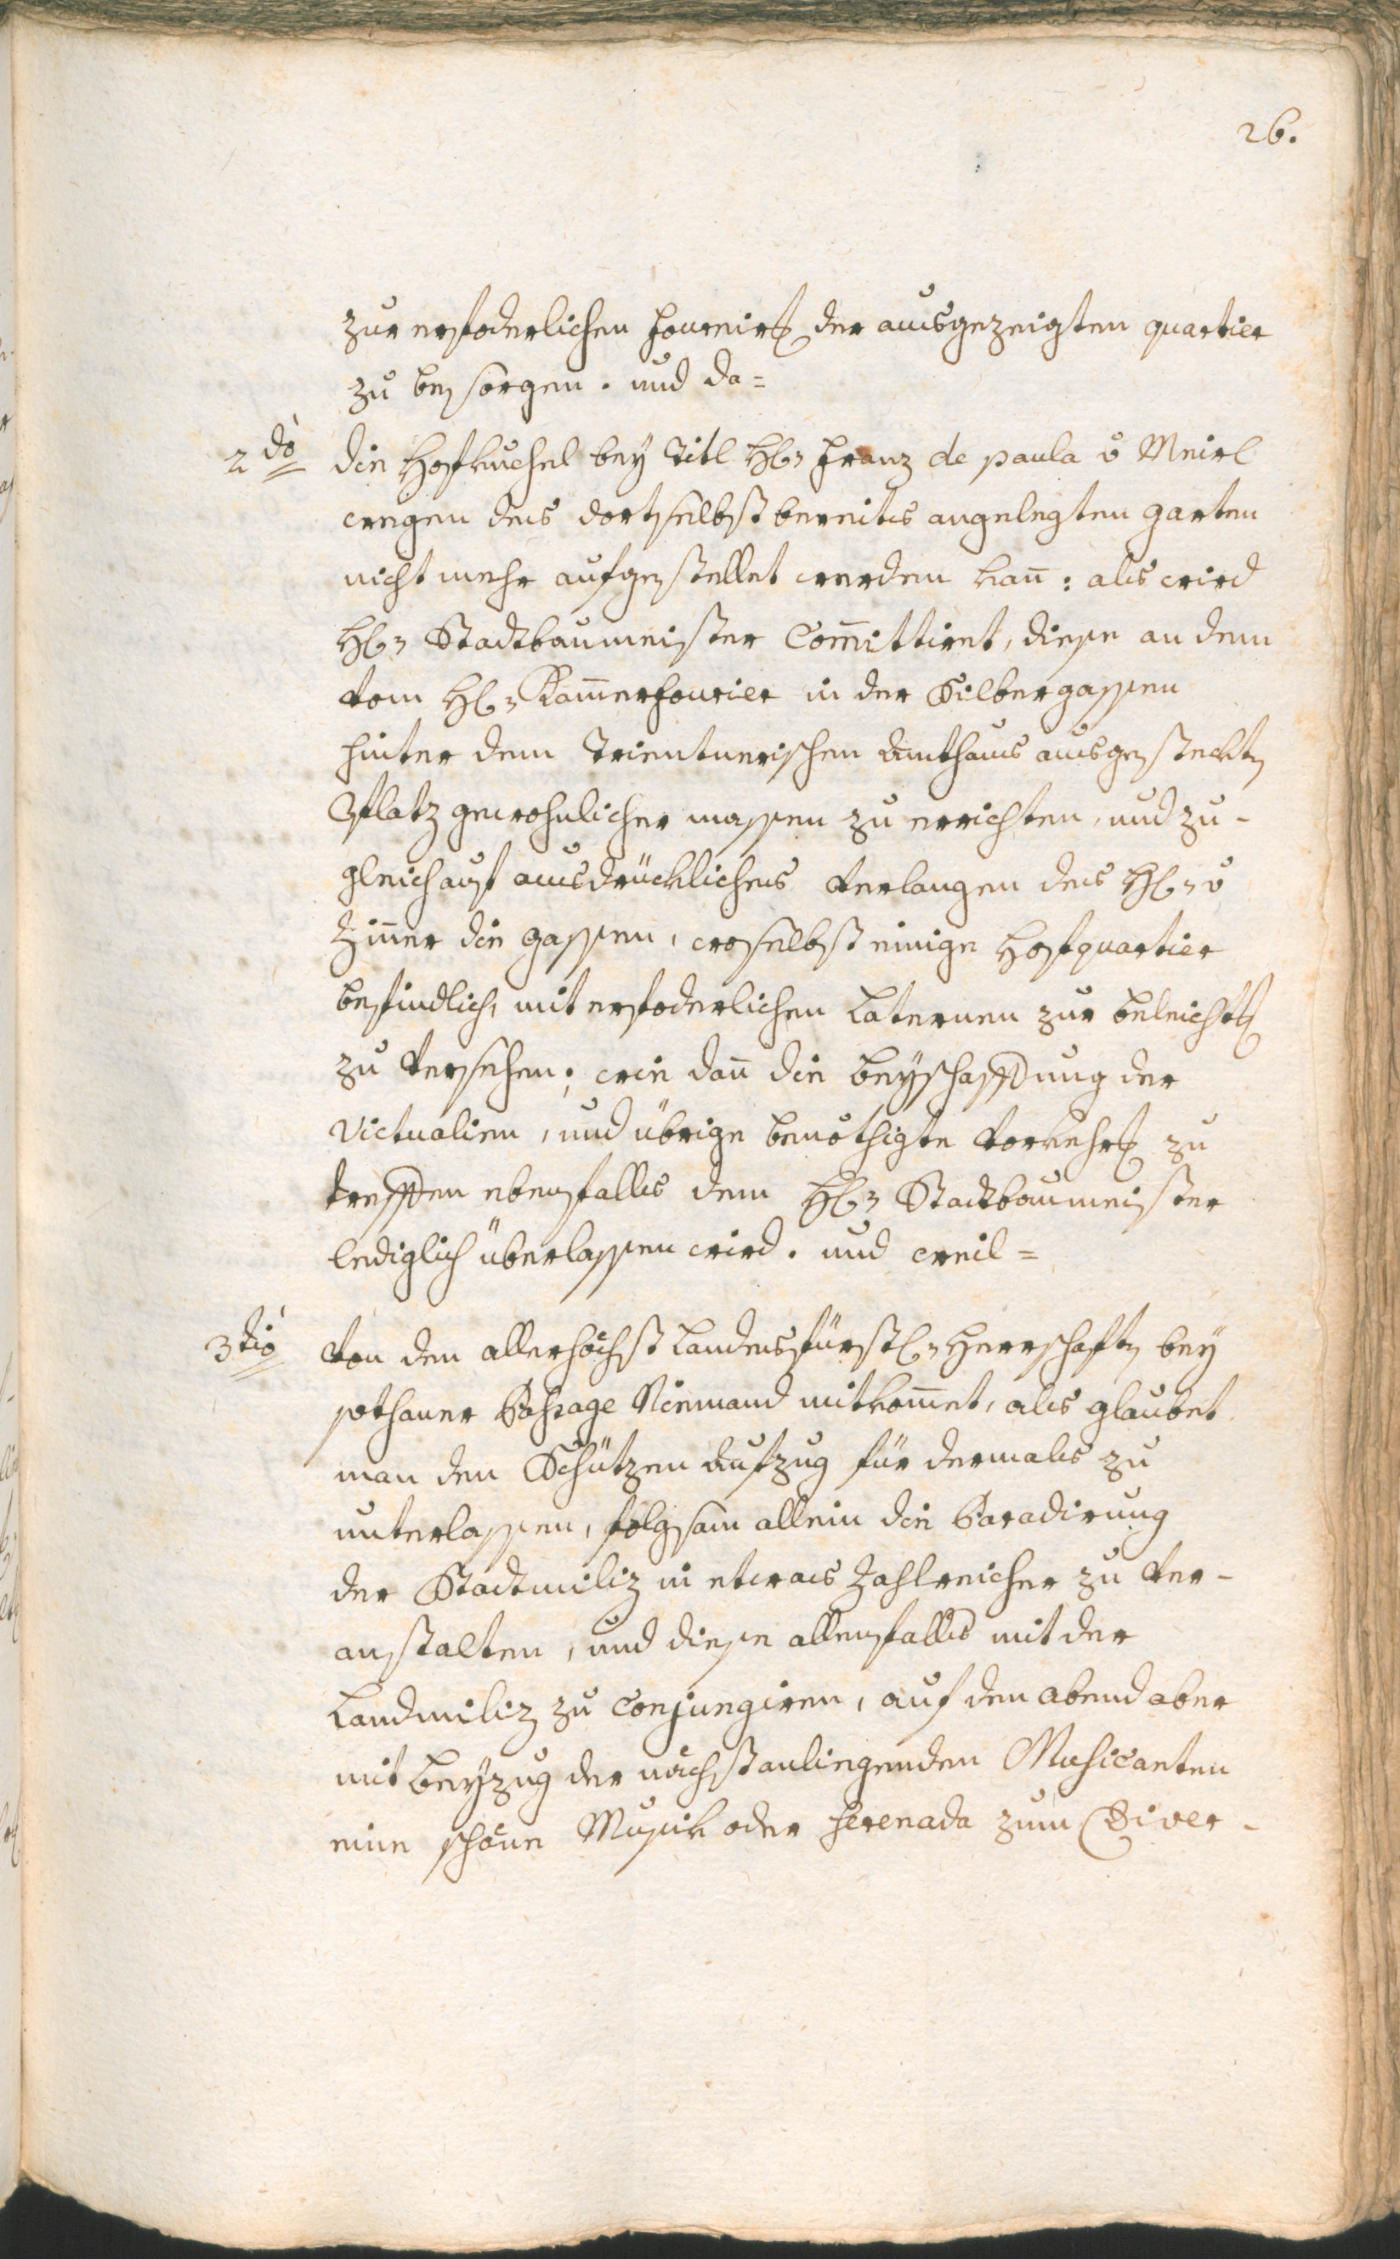 26.
zur erfoderlichen Fournirg der ausgezeigten quartier
zu besorgen. und da=
2do die Hofkuchel bey Titl Hl: Franz de paula v Meirl
wegen des dortselbst bereits angelegten Garten
nicht mehr aufgestellet werden kan̄: als wird
Hl: Stadtbaumeister Com̄ittiret, diese an dem
vom Hl: Kam̄erfourier in der Silbergassen
hinter dem Trientnerischen Amthaus ausgesteckten
Platz gewohnlicher massen zu errichten, und zu-
gleich auf ausdrücklichens Verlangen des Hl: v
Zin̄er die Gassen, woselbst einige Hofquartier
befindlich, mit erfoderlichen Laternen zur beleichtg
zu versehen; wie dan̄ die beyschaffung der
Victualien, und übrige benöthigte Vorkehrg zu
treffen ebenfalls dem Hl: Stadtbaumeister
lediglich überlassen wird. und weil=
3tio Von den allerhöchst Landesfürstl: Herrschaften bey
sothaner Passage Niemand mitkom̄et, als glaubet
man den Schützen Aufzug für dermals zu
unterlassen, folgsam allein die Paradirung
der Stadtmiliz in etwas Zahlreicher zu ver-
anstalten, und diese allenfalls mit der
Landmiliz zu Conjungiren, auf den abend aber
mit beyzug der nächstanliegenden Musicanten
eine schöne Musik oder serenada zum Diver-